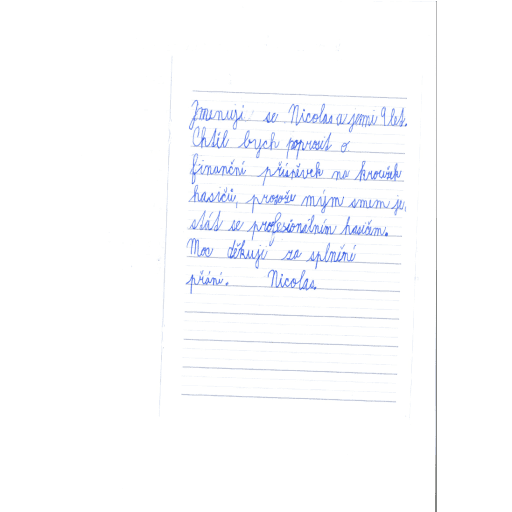 Jmenuji se Nicolas a jemi 9 let.
Chtěl bych poprosit o
finanční příspěvek na kroužek
hasičů, protože mým snem je,
stát se profesionálním hasičem.
Moc děkuji za splnění
přání. Nicolas